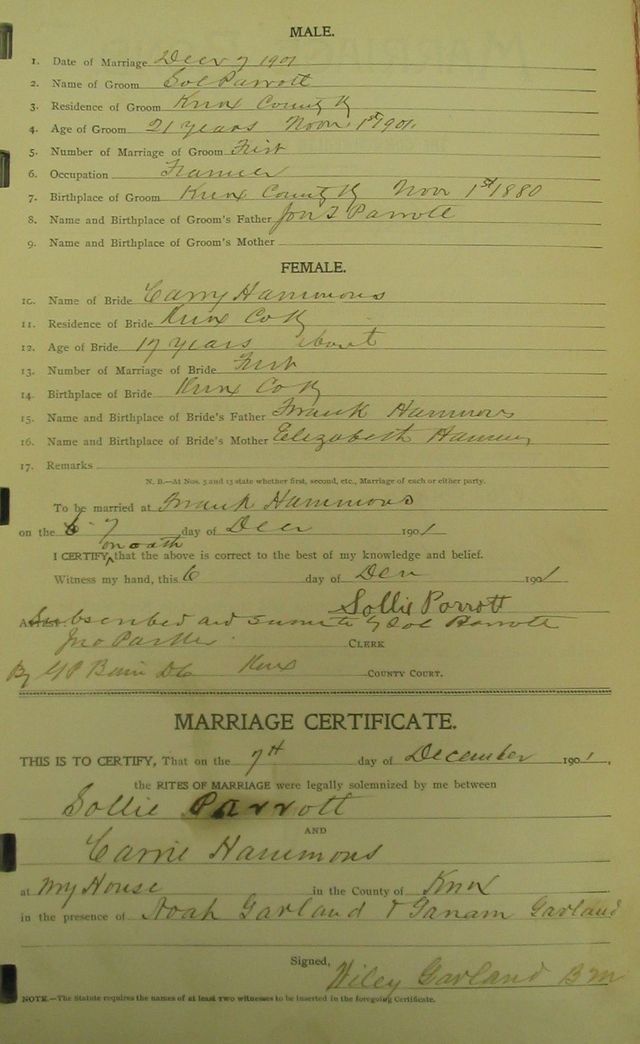 MALE.
1. Date of Marriage Decr 7 1901
2. Name of Groom Sol Parrott
3. Residence of Groom Knox County Ky
4. Age of Groom 21 years Novr 1st 1901
5. Number of Marriage of Groom First
6. Occupation Farmer
7. Birthplace of Groom Knox County Ky Novr 1st 1880
8. Name and Birthplace of Groom's Father Parrott
9. Name and Birthplace of Groom's Mother
FEMALE.
10. Name of Bride Carry Hammons
11. Residence of Bride Knox Co Ky
12. Age of Bride 17 years about
13. Number of Marriage of Bride First
14. Birthplace of Bride Knox Co Ky
15. Name and Birthplace of Bride's Father Frank Hammons
16. Name and Birthplace of Bride's Mother Elizabeth Hammons
17. Remarks
N. B.—At Nos. 5 and 13 state whether first, second, etc., Marriage of each or either party.
To be married at Frank Hammons
on the 7 day of Decr 1901
on oath
I CERTIFY that the above is correct to the best of my knowledge and belief.
Witness my hand, this 6 day of Decr 1901
Sollie Parrott
Subscribed and sworn to by Sol Parrott
Jno Parker CLERK
By G P Bain DC Knox COUNTY COURT.
MARRIAGE CERTIFICATE.
THIS IS TO CERTIFY, That on the 7th day of December 1901,
the RITES OF MARRIAGE were legally solemnized by me between
Sollie Parrott
AND
Carrie Hammons
at My House in the County of Knox
in the presence of Noah Garland & Garland
Signed,
Wiley Garland B M
NOTE.—The Statute requires the names of at least two witnesses to be inserted in the foregoing Certificate.